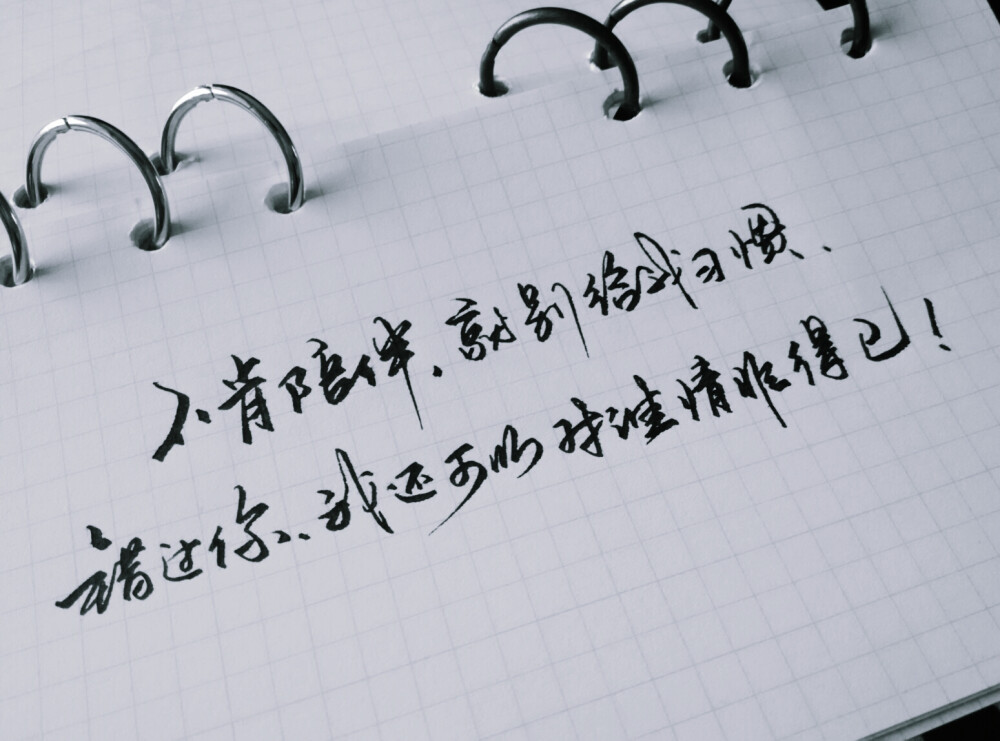 不肯陪伴,就别给我习惯、
错过你、我还可以对谁情非得已!